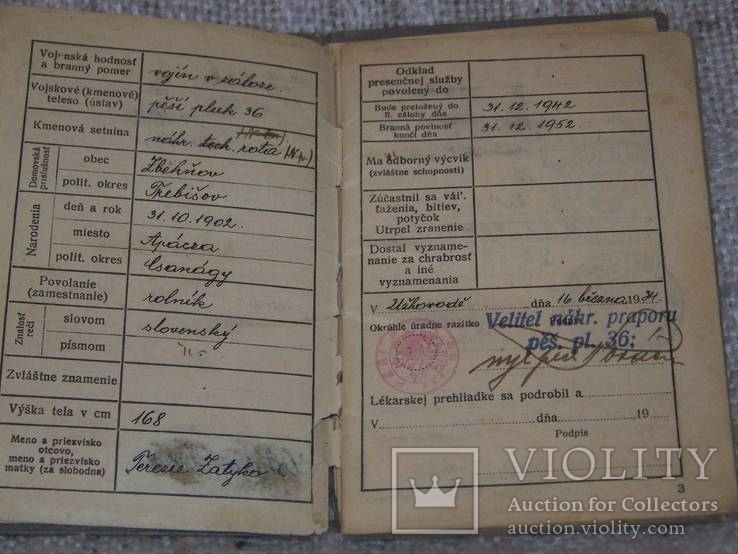 Vojenská hodnosť
a branný pomer
vojín v záloze.
Vojskové (kmenové)
teleso (ústav)
pěší pluk 36
Kmenová setnina
náhr. tech. rota
Domovská
príslušnosť
obec
Zbehňov
polit. okres
Třebišov
Narodenia
deň a rok
31.10.1902.
miesto
Apácza
polit. okres
Csanágy
Povolanie
(zamestnanie)
rolník
Znalosť
reči
slovom
slovenský
písmom
"-
Zvláštne znamenie
Výška tela v cm
168
Meno a priezvisko
otcovo,
meno a priezvisko
matky (za slobodna)
Terezie Zatyko
Odklad
presenčnej služby
povolený do
Bude preložený do
II. zálohy dňa
31.12.1942
Branná povinosť
končí dňa
31.12.1952.
Má odborný výcvik
(zvláštne schopnosti)
Zúčastnil sa vál.
ťaženia, bitiev,
potyčok
Utrpel zranenie
Dostal vyznamenanie
za chrabrosť
a iné
vyznamenánia
V Užhorodě dňa 16. března 1934.
Okrúhle úradne razítko
Velitel náhr. praporu
pěš. pl. 36:
Lékarskej prehliadke sa podrobil a
V dňa 19
Podpis
3
VIOLITY
Auction for Collectors
auction.violity.com